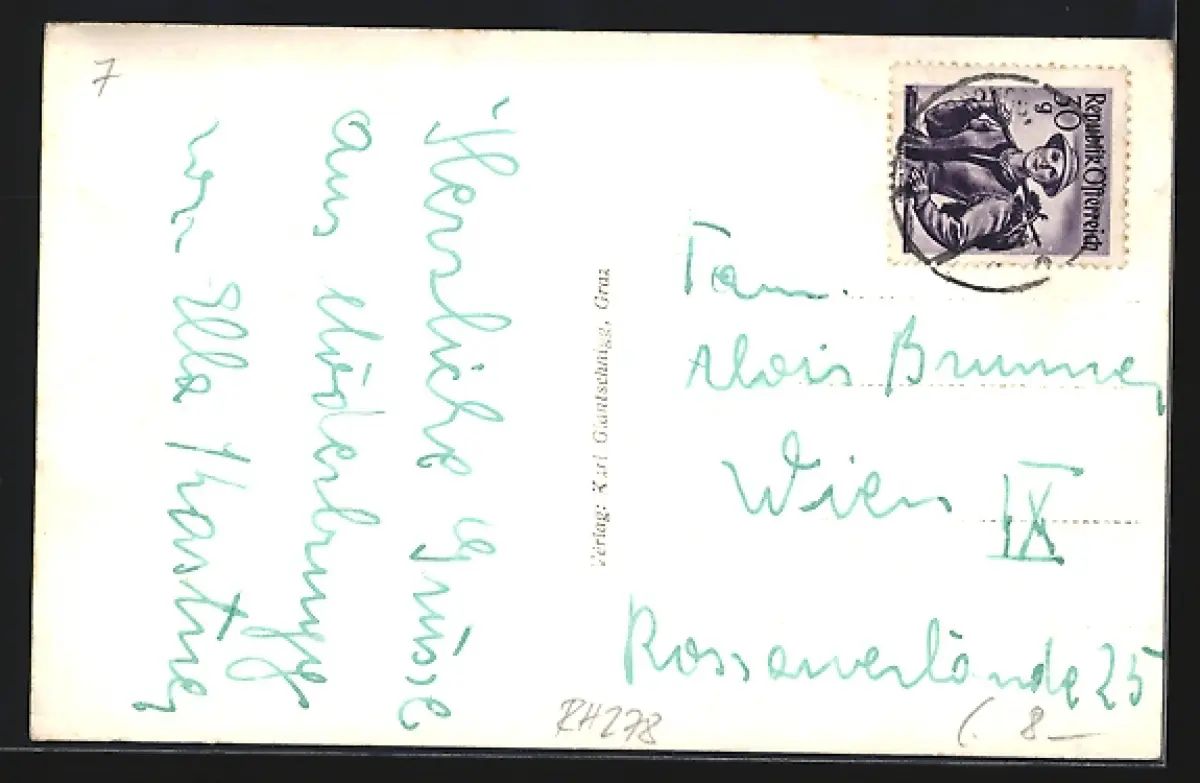 7
Herzliche Grüsse
aus
von Ella Kastner
Verlag: Karl Glantschnigg, Graz
Republik Österreich
30 g
Fam.
Alois Brunner
Wien IX
Rossauerlände 25
RH278
8—